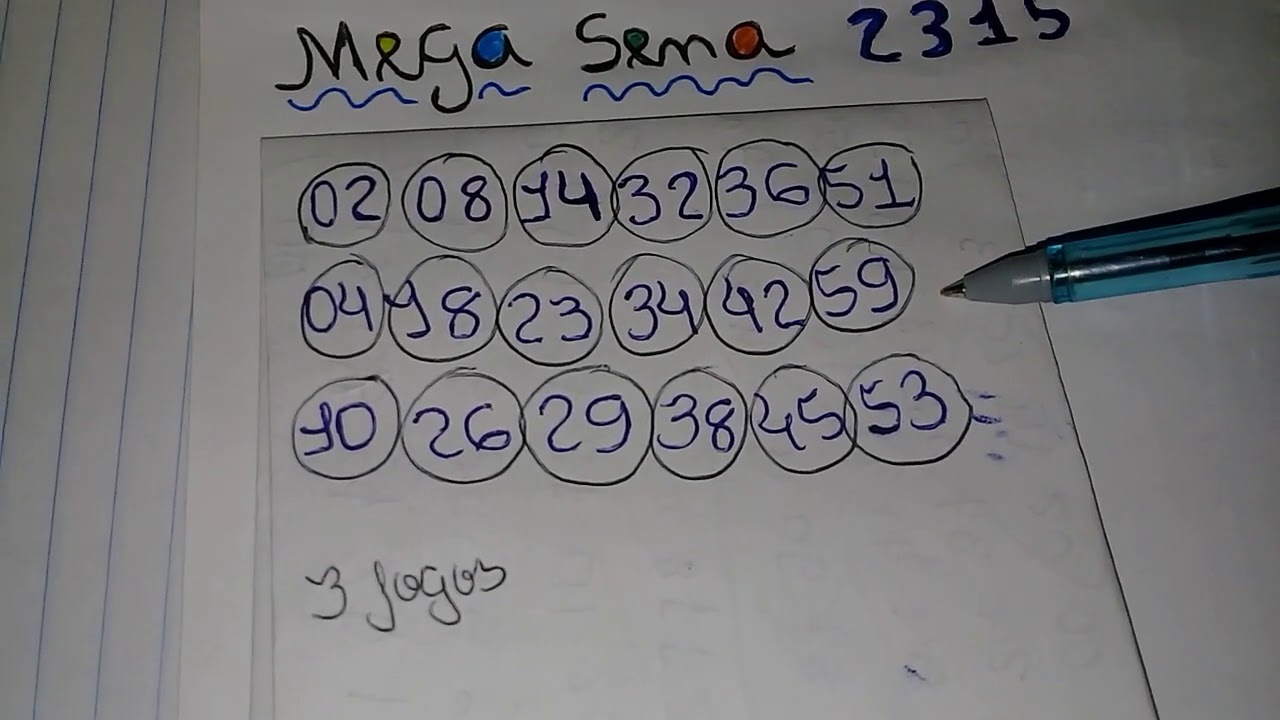 Mega Sena 2315
02 08 14 32 36 51
04 18 23 34 42 59
10 26 29 38 45 53 =
3 jogos